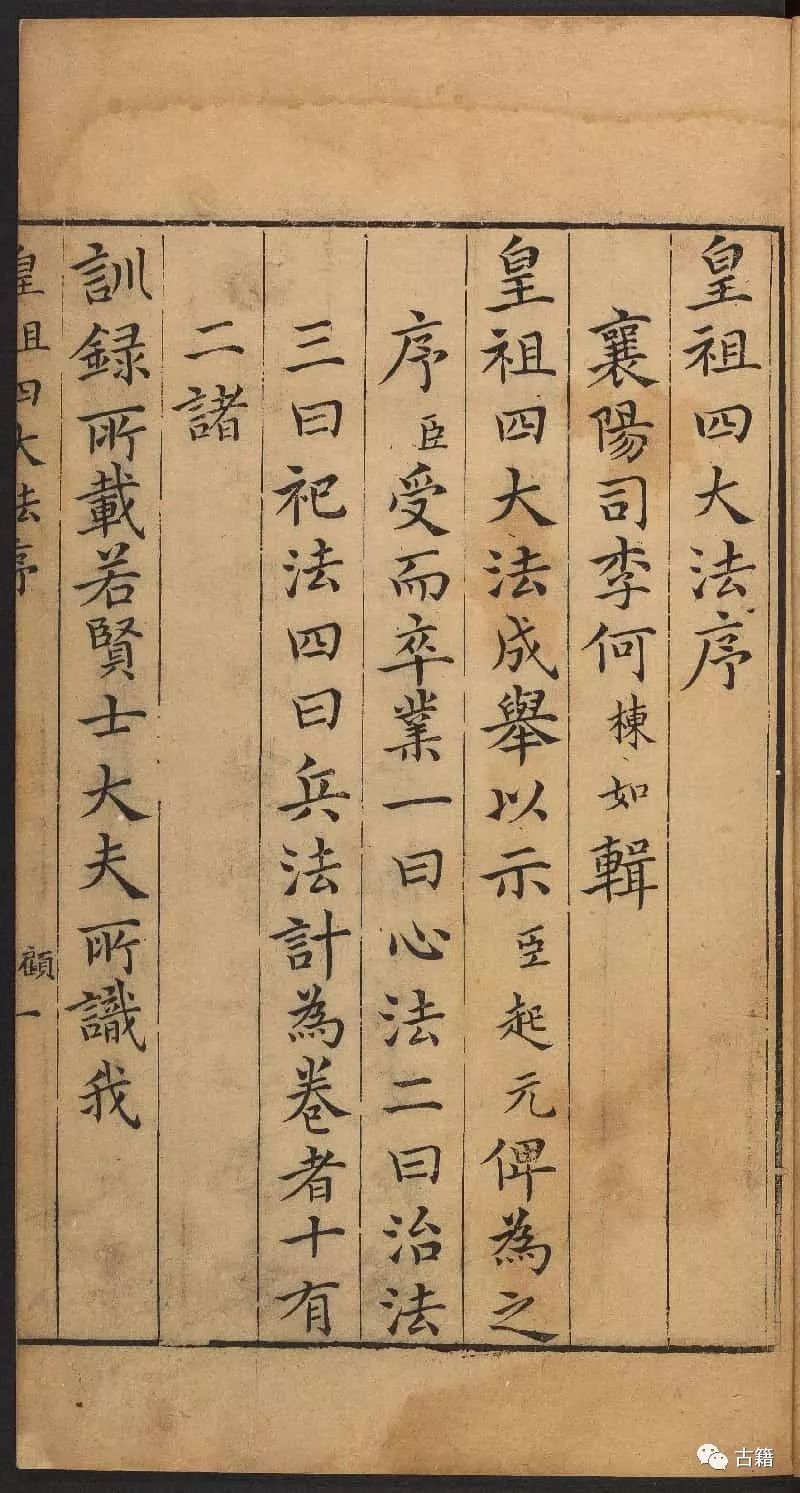 皇祖四大法序
襄陽司李何棟如輯
皇祖四大法成舉以示臣起元俾為之
序臣受而卒業一曰心法二曰治法
三曰祀法四曰兵法計為卷者十有
二諸
訓録所載若賢士大夫所識我
皇祖四大法序
顧一
古籍